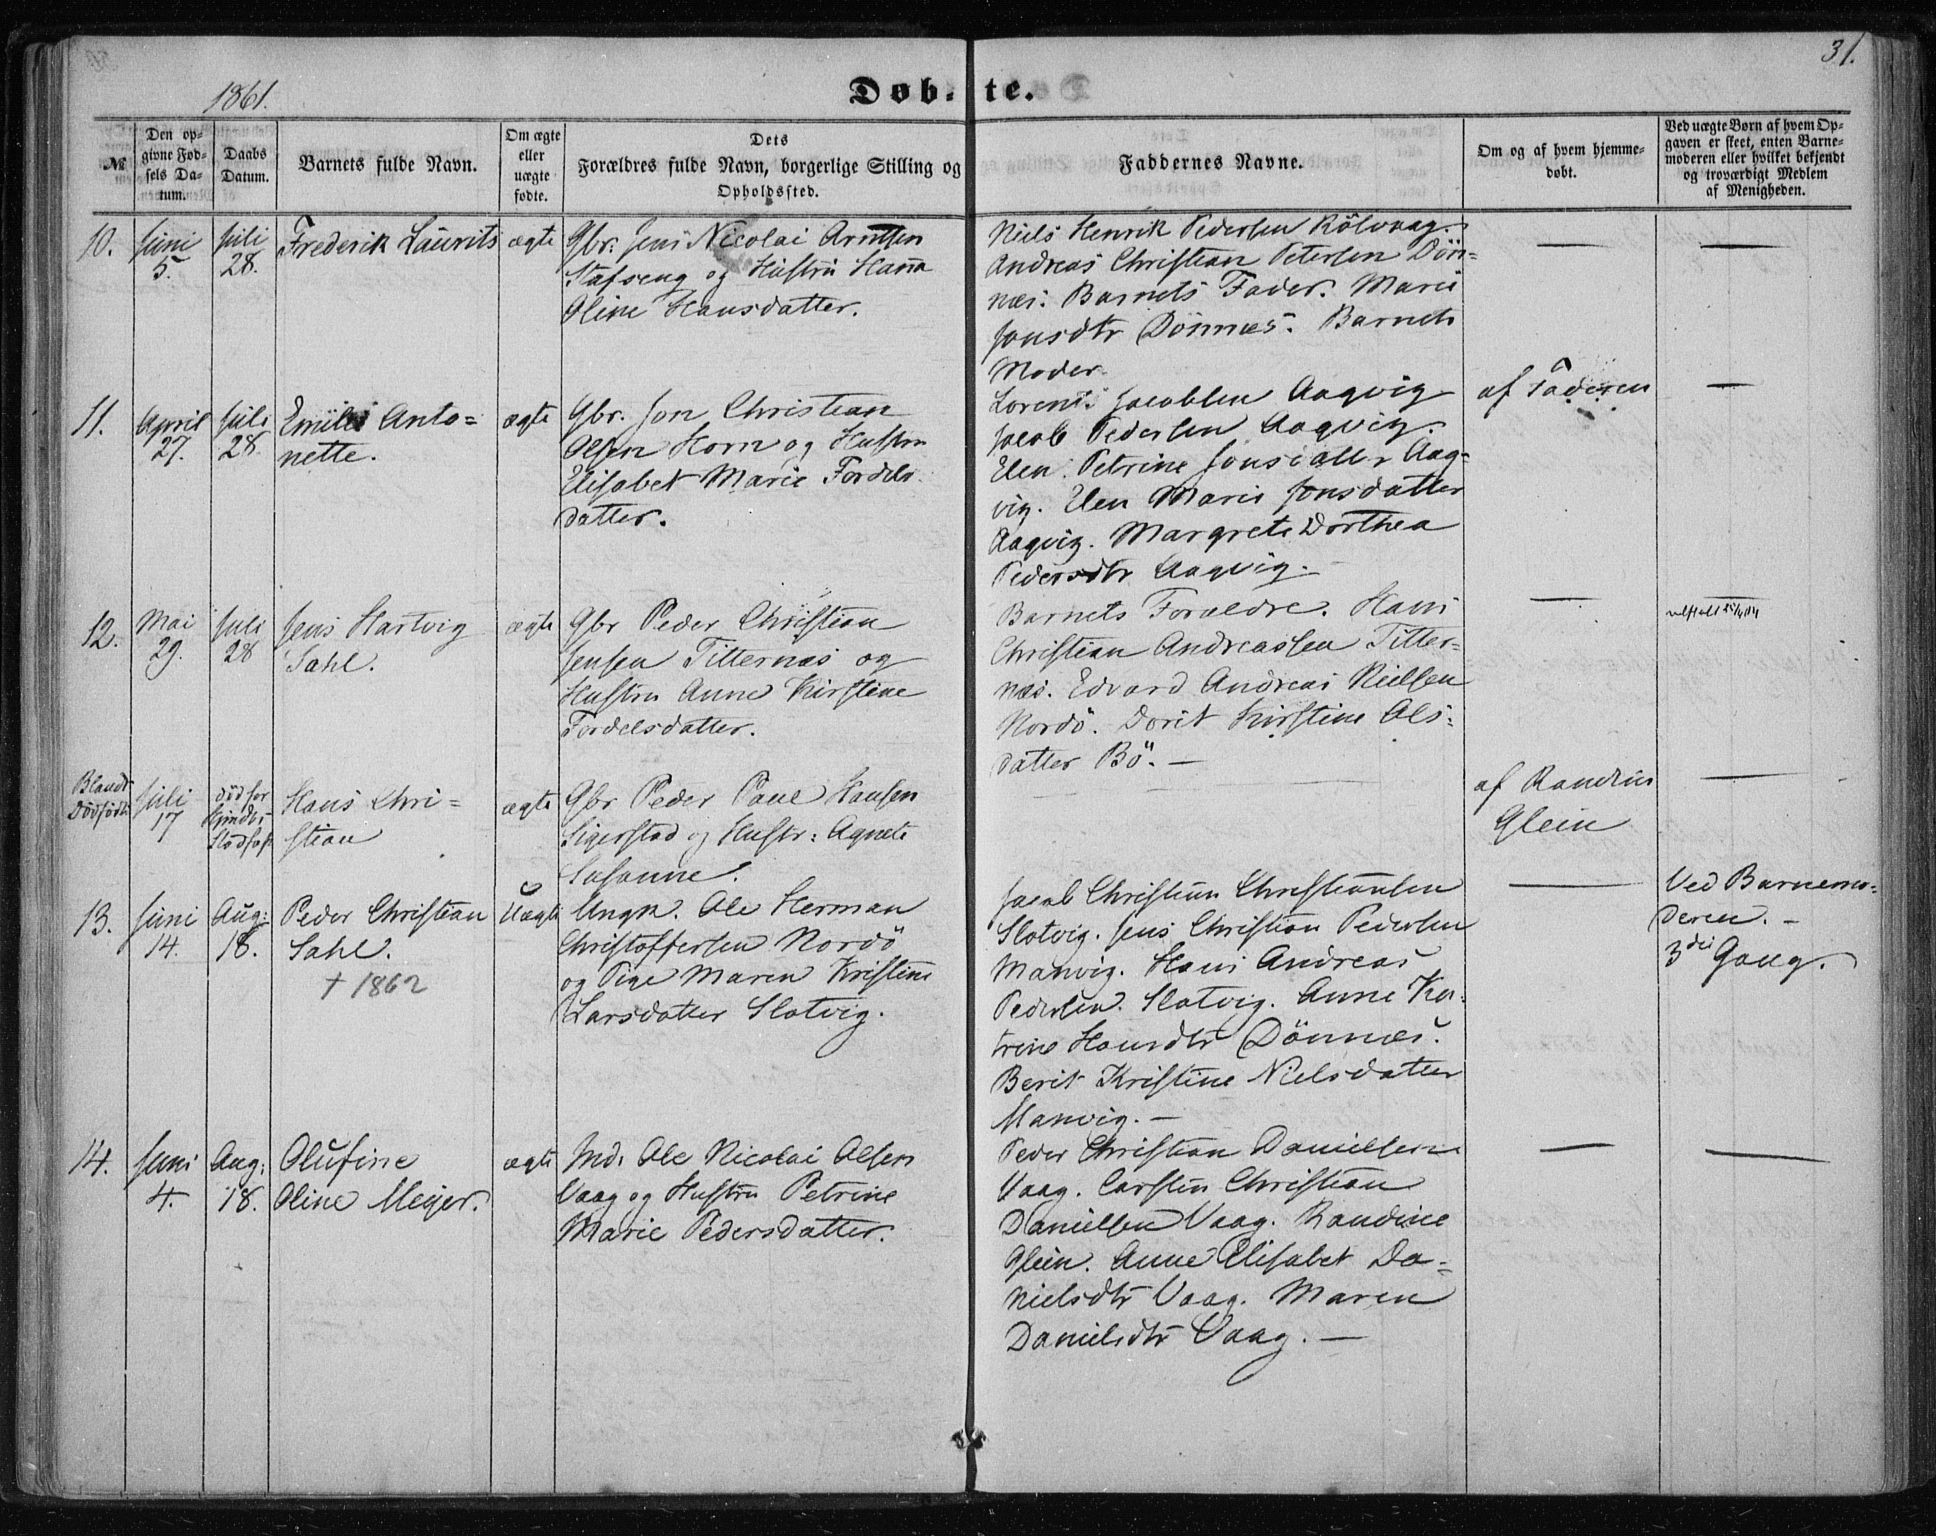 31.
1861.
Døbte.
№
Den op-
givne Fød-
sels Da-
tum.
Daabs
Datum.
Barnets fulde Navn.
Om ægte
eller
uægte
fødte.
Dets
Forældres fulde Navn, borgerlige Stilling og
Opholdssted.
Faddernes Navne.
Om og af hvem hjemme-
døbt.
Ved uægte Børn af hvem Op-
gaven er skeet, enten Barne-
moderen eller hvilket bekjendt
og troværdigt Medlem
af Menigheden.
10.
Juni
5.
Juli
28.
Frederik Laurits
ægte
Gbr. Jens Nicolai Arntsen
Stafseng og Hustru Hanna
Oline Hansdatter.
Niels Henrik Pedersen Rölvaag.
Andreas Christian Petersen Dön-
næs. Barnets Fader. Marie
Jonsdtr Dönnæs. Barnets
Moder.
—
—
11.
April
27.
Juli
28.
Emilie Anto-
nette.
ægte
Gbr. Jon Christian
Olsen Horn og Hustru
Elisabet Marie Tordels-
datter.
Lorents Jacobsen Aagvig
Jacob Pedersen Aagvig.
Elen Petrine Jonsdatter Aag-
vig. Elen Marie Jonsdatter
Aagvig. Margrete Dorthea
Pedersdtr Aagvig.
af Faderen
—
12.
Mai
29.
Juli
28
Jens Hartvig
Sahl.
ægte
Gbr Peder Christian
Jensen Titternæs og
Hustru Anne Kirstine
Tordelsdatter.
Barnets Forældre. Hans
Christian Andreassen Titter-
næs. Edvard Andreas Nielsen
Nordö. Dorit Kirstine Ols-
datter Bö. —
—
Blandt
Dödfödte
Juli
17
död for
Hans Chri-
stian
ægte
Gbr Peder Paul Hansen
Sigerstad og Hustr: Agnete
Susanne.
af Randine
Glein
—
13.
Juni
14.
Aug:
18.
Peder Christian
Sahl.
† 1862
Uægte
Ungk. Ole Herman
Christoffersen Nordö
og Pige Maren Kristine
Larsdatter Slotvig.
Jacob Christian Christiansen
Slotvig. Jens Christian Pedersen
Manvig. Hans Andreas
Pedersen Slotvig. Anne Ka-
trine Hansdtr Dönnæs.
Berit Kristine Nielsdatter
Manvig. —
—
Ved Barnemo-
deren. —
3die Gang.
14.
Juni
4.
Aug:
18.
Olufine
Oline Meyer.
ægte
Ind. Ole Nicolai Olsen
Vaag og Hustru Petrine
Marie Pedersdatter.
Peder Christian Danielsen
Vaag. Carsten Christian
Danielsen Vaag. Randine
Glein. Anne Elisabet Da-
nielsdtr Vaag. Maren
Danielsdtr Vaag. —
—
—